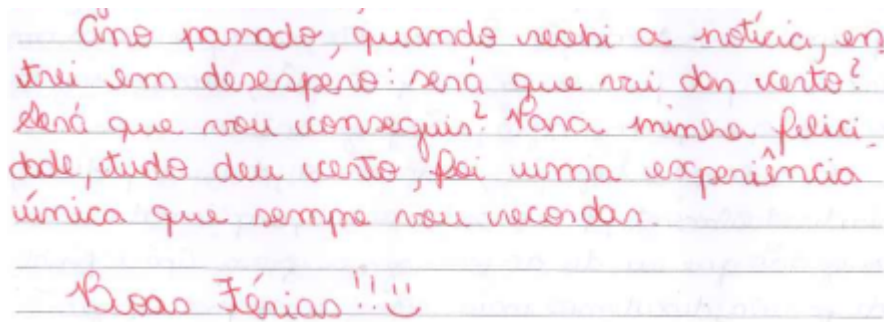 Ano passado, quando recebi a notícia, en
trei em desespero: será que vai dar certo?
Será que vou conseguir? Para minha felici
dade, tudo deu certo, foi uma experiência
única que sempre vou recordar.
Boas Férias!!! :)